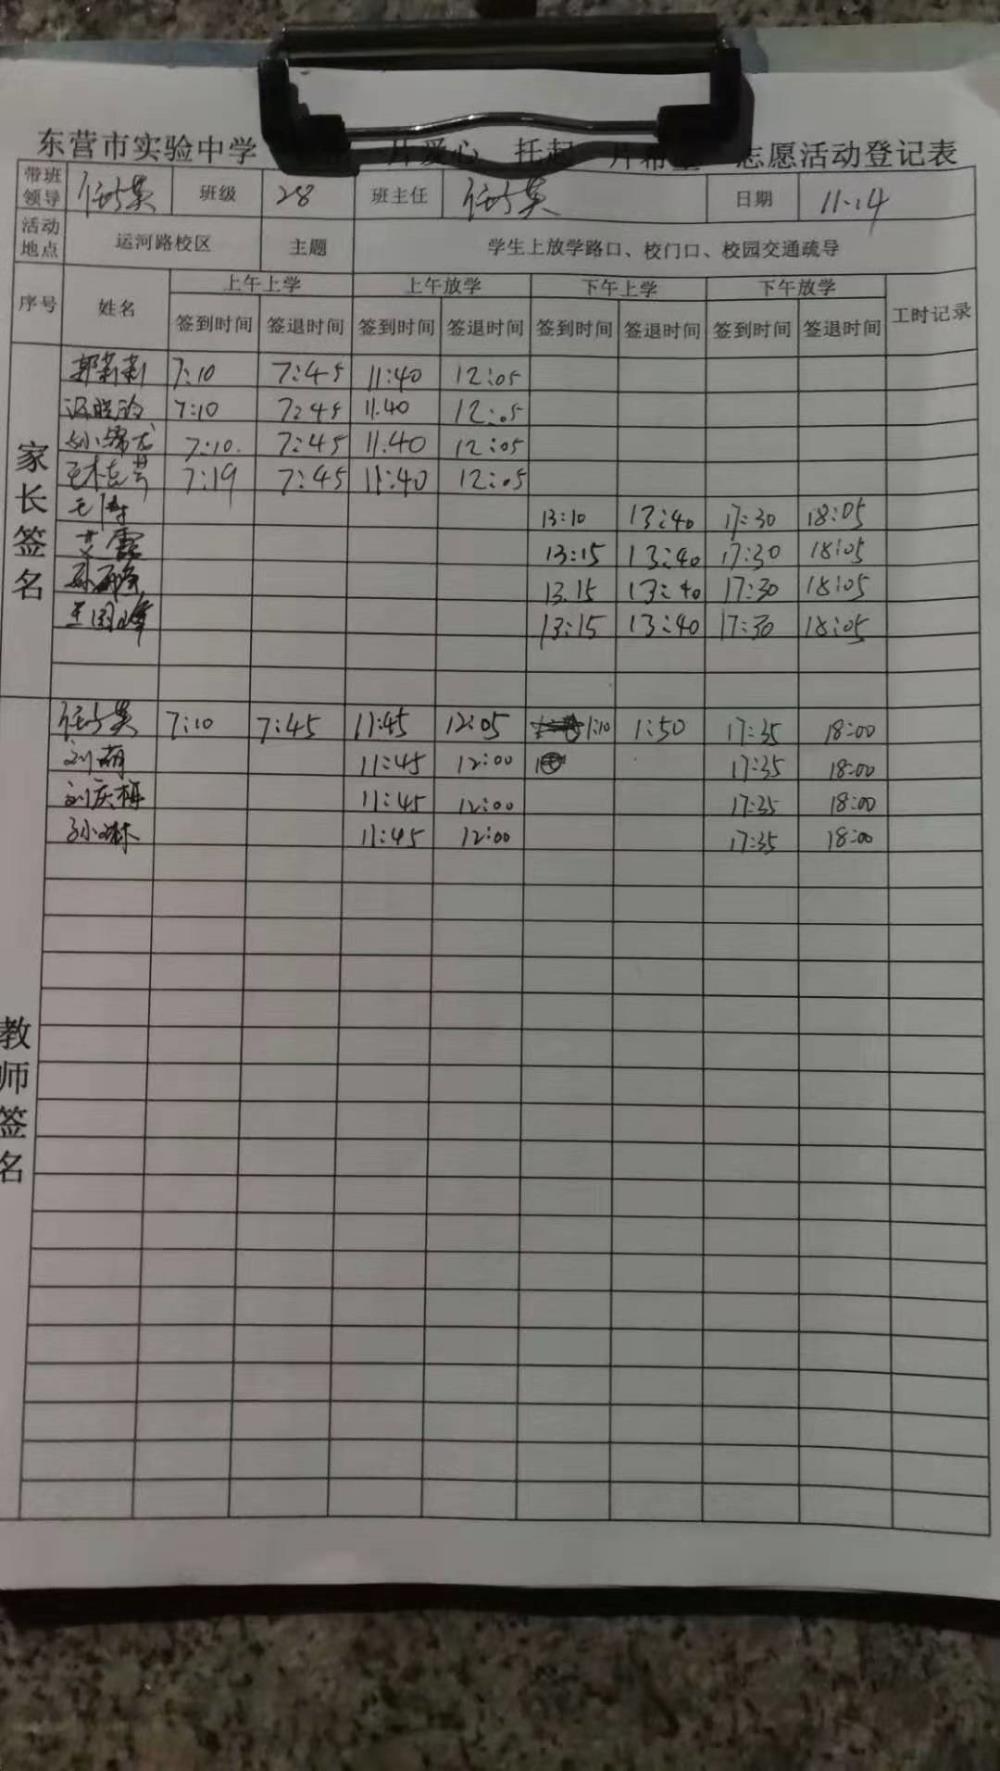 东营市实验中学 片爱心 托起 志愿活动登记表
带班领导 班级 28 班主任 日期 11.14
活动地点 运河路校区 主题 学生上放学路口、校门口、校园交通疏导
序号 姓名 上午上学 上午放学 下午上学 下午放学 工时记录
签到时间 签退时间 签到时间 签退时间 签到时间 签退时间 签到时间 签退时间
家长签名
郭莉莉 7:10 7:45 11:40 12:05
7:10 7:45 11.40 12:05
7:10. 7:45 11.40 12:05
7:19 7:45 11:40 12:05
13:10 13:40 17:30 18:05
艾露 13:15 13:40 17:30 18:05
13.15 13:40 17:30 18:05
王国峰 13:15 13:40 17:30 18:05
教师签名
7:10 7:45 11:45 12:05 1:10 1:50 17:35 18:00
刘萌 11:45 12:00 17:35 18:00
刘庆梅 11:45 12:00 17:35 18:00
孙淋 11:45 12:00 17:35 18:00